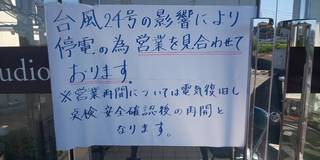 台風24号の影響により
停電の為営業を見合わせて
おります。
※営業再開については電気復旧し
点検安全確認後の再開と
なります。
udio